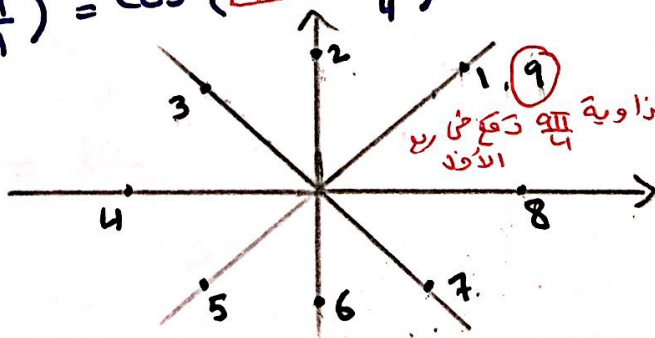 ) = cos (
4
2
1, 9
3
زاوية 9π/4 تقع في ربع
الأول
4
8
5
6
7